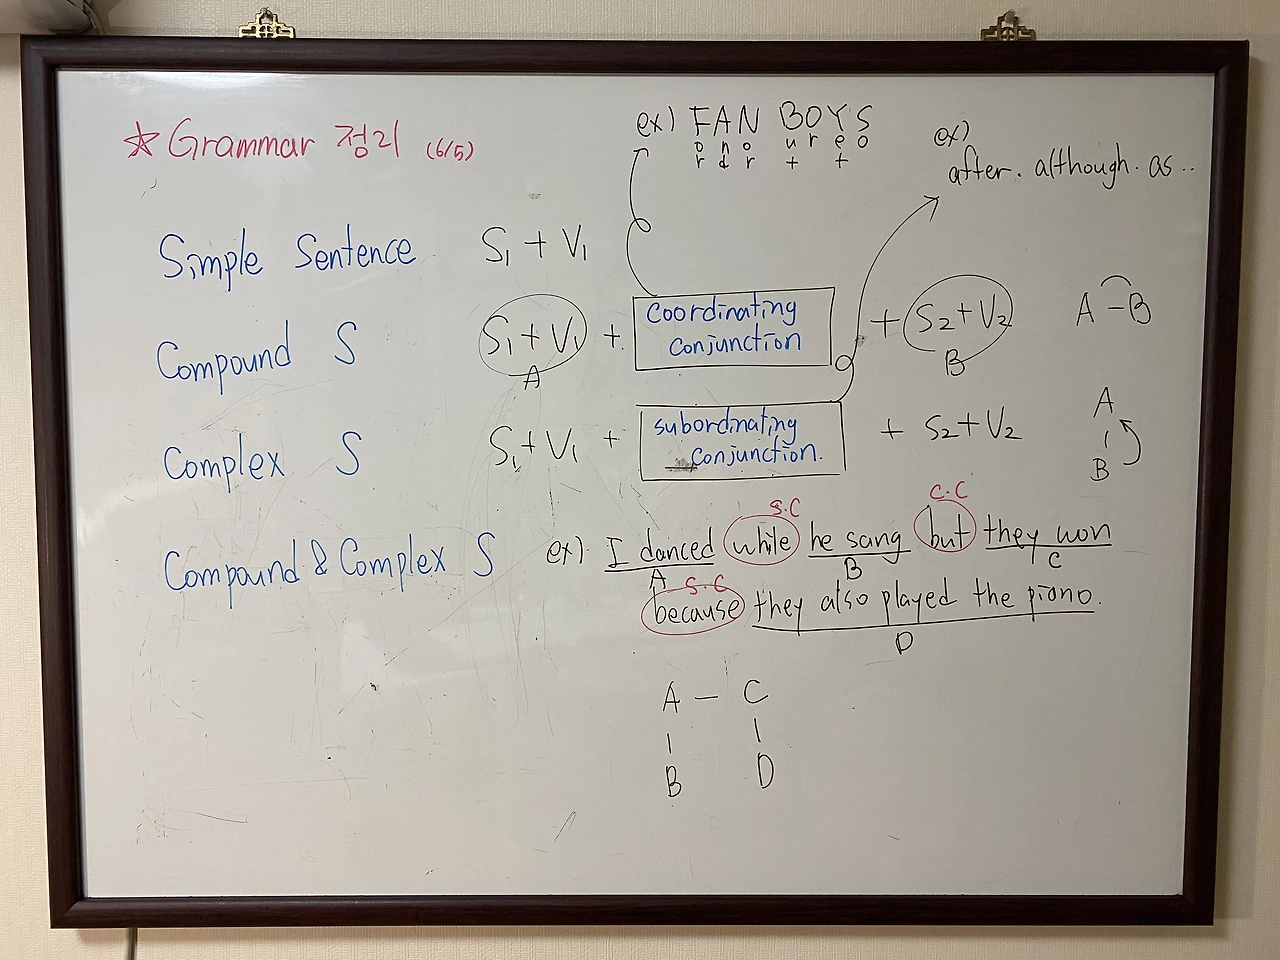 ☆ Grammar 정리 (6/5)
ex) FAN BOYS
or nd or ut r et o
ex)
after. although. as...
Simple Sentence S₁ + V₁
Compound S S₁ + V₁ + coordinating conjunction + S₂ + V₂ A – B
A B
Complex S S₁ + V₁ + subordinating conjunction. + S₂ + V₂ A
B
S.C C.C
Compound & Complex S ex) I danced while he sang but they won
A B C
S.C
because they also played the piano.
D
A – C
B D